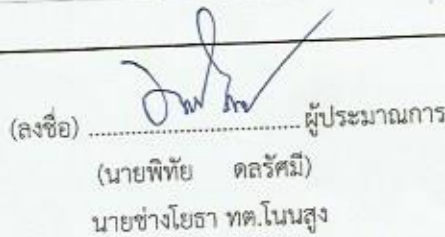 (ลงชื่อ) ................................ ผู้ประมาณการ
(นายพิทัย ดลรัศมี)
นายช่างโยธา ทต.โนนสูง